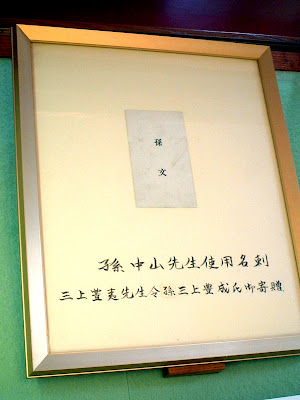 孫文
孫中山先生使用名刺
三上豊夷先生令孫三上豊成氏御寄贈